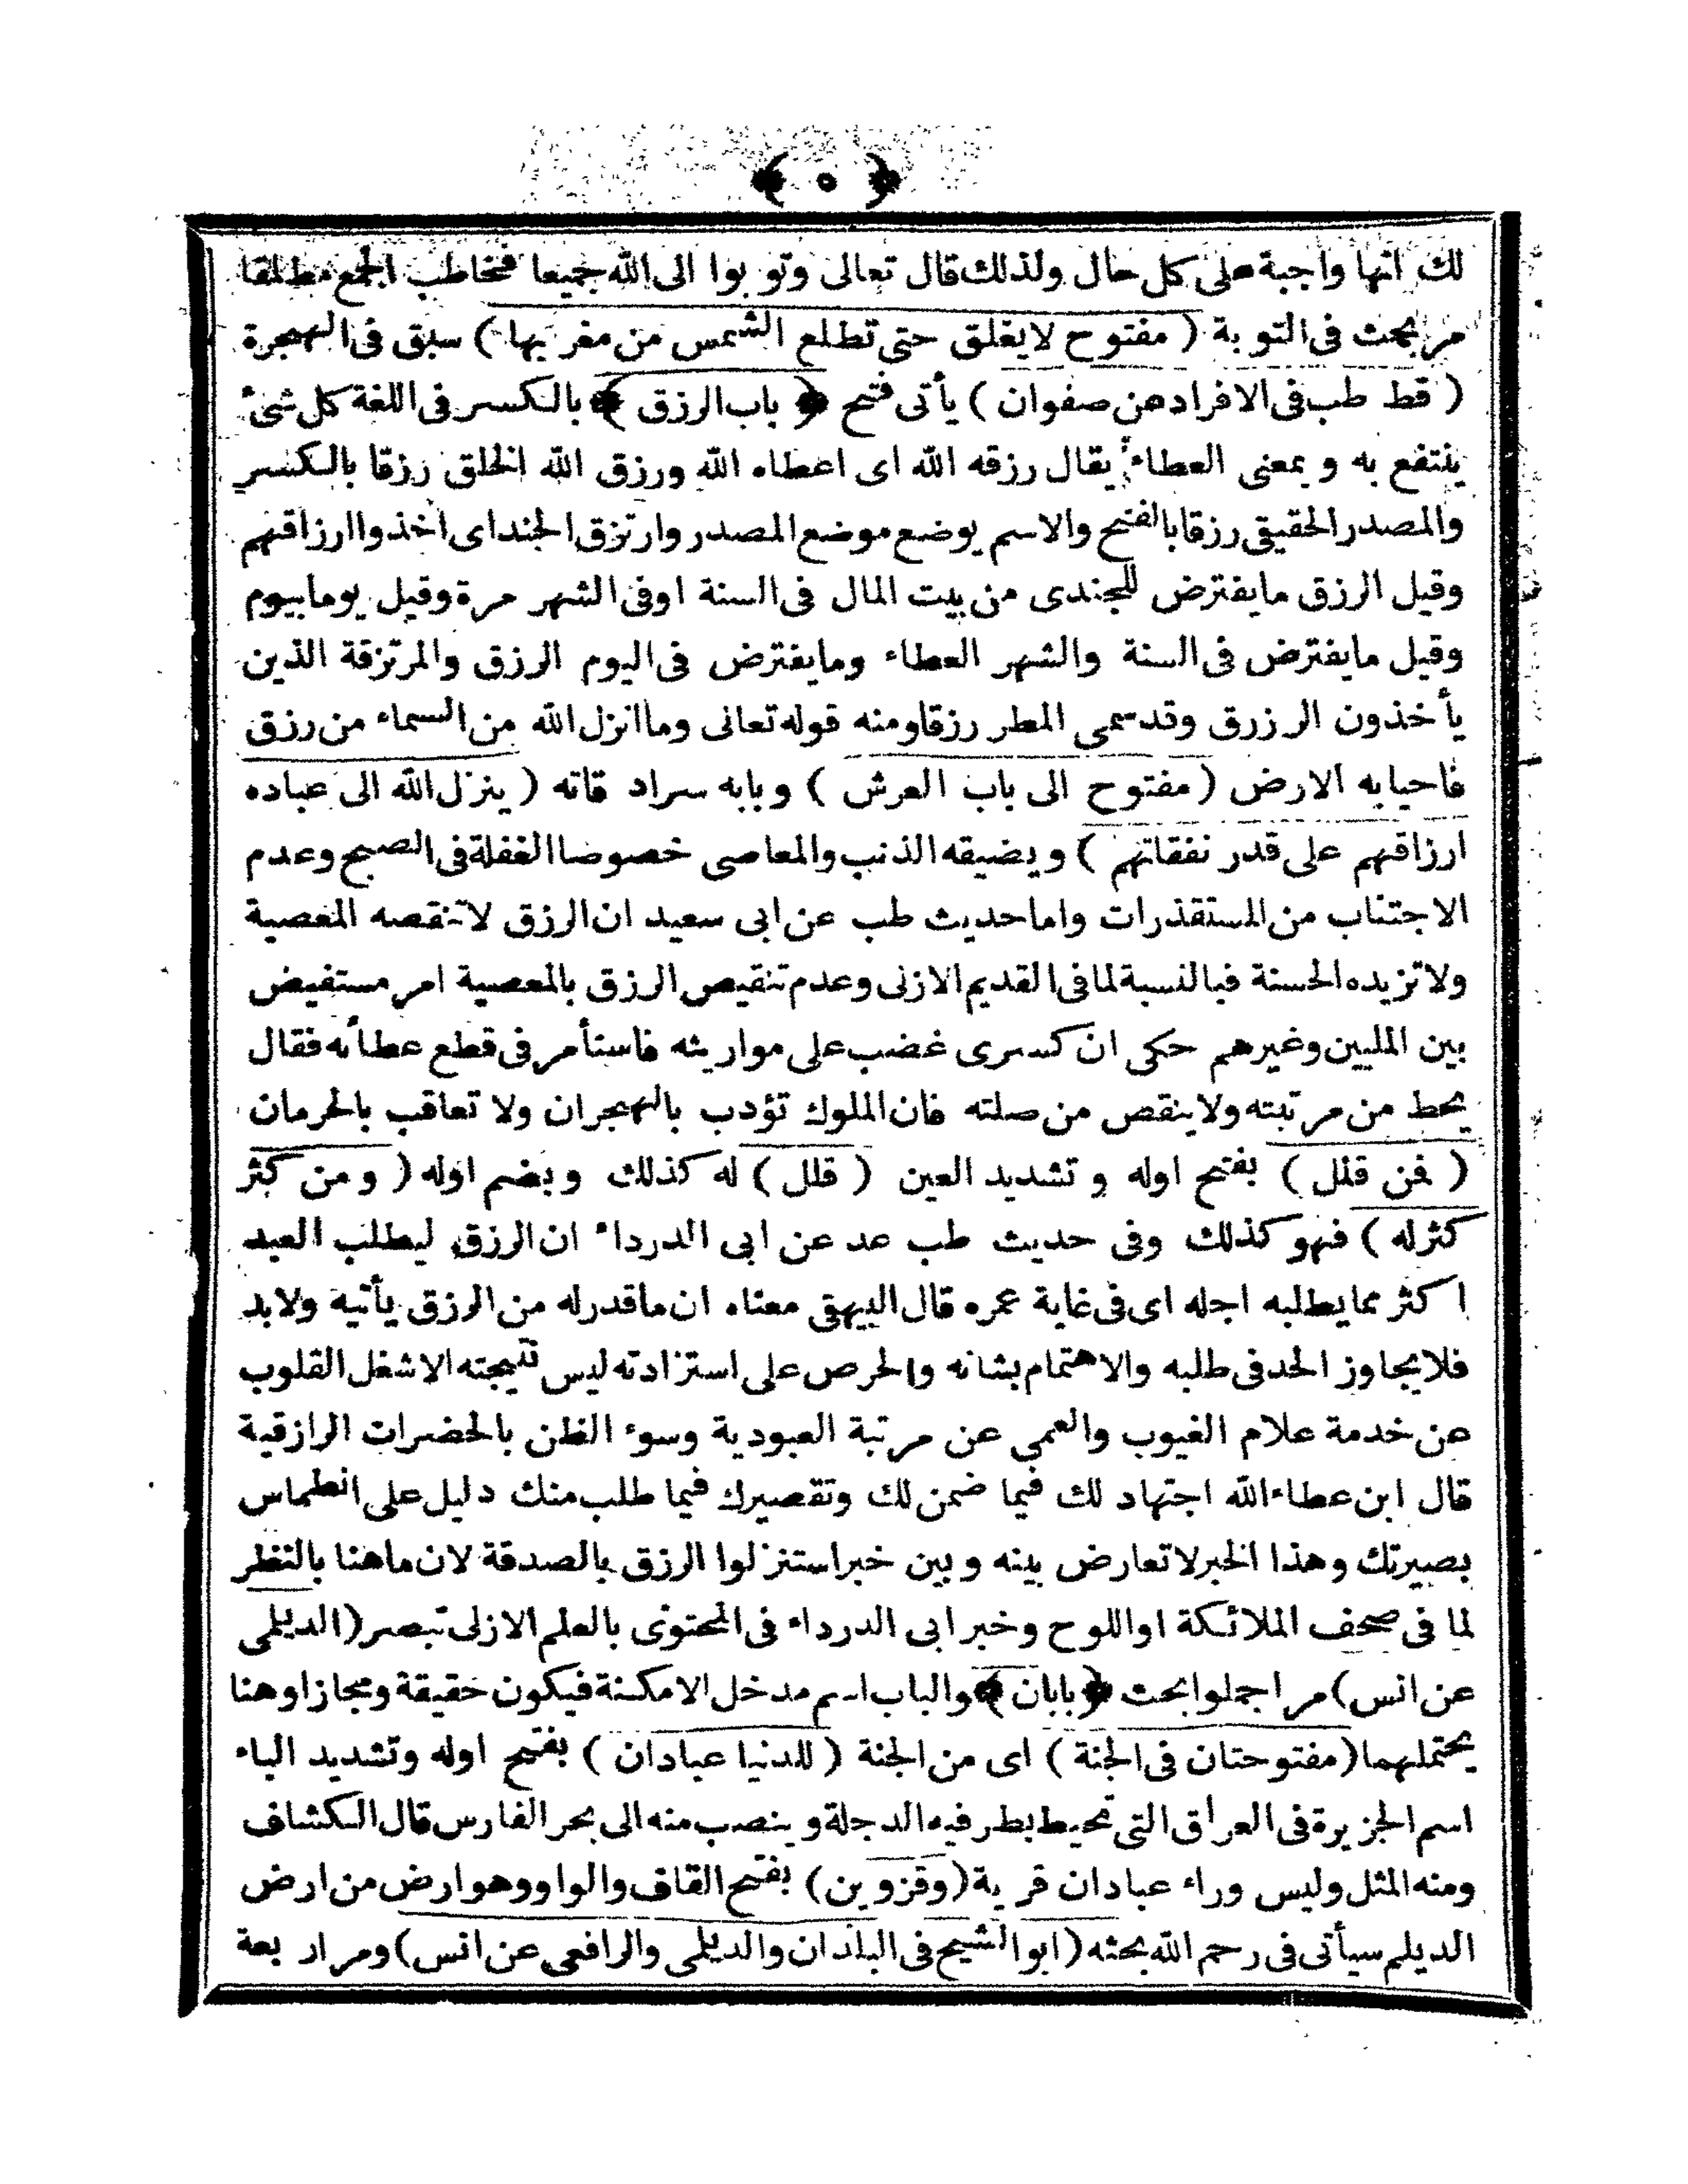 ﴿ ٥ ﴾
لك انها واجبة على كل حال ولذلك قال تعالى وتوبوا الى الله جميعا فخاطب الجمع مطلقا
مر بحث فى التوبة ( مفتوح لايغلق حتى تطلع الشمس من مغربها ) سبق فى الهجرة
( قط طب فى الافراد عن صفوان ) يأتى فتح ﴿ باب الرزق ﴾ بالكسر فى اللغة كل شئ
ينتفع به وبمعنى العطاء يقال رزقه الله اى اعطاه الله ورزق الله الخلق رزقا بالكسر
والمصدر الحقيقى رزقا بالفتح والاسم يوضع موضع المصدر وارتزق الجند اى اخذوا ارزاقهم
وقيل الرزق مايفترض للجندى من بيت المال فى السنة اوفى الشهر مرة وقيل يوما بيوم
وقيل مايفترض فى السنة والشهر العطاء ومايفترض فى اليوم الرزق والمرتزقة الذين
يأخذون الرزرق وقد سمى المطر رزقا ومنه قوله تعالى وما انزل الله من السماء من رزق
فاحيا به الارض ( مفتوح الى باب العرش ) وبابه سراد قاته ( ينزل الله الى عباده
ارزاقهم على قدر نفقاتهم ) ويضيقه الذنب والمعاصى خصوصا الغفلة فى الصبح وعدم
الاجتناب من المستقذرات واما حديث طب عن ابى سعيد ان الرزق لاتنقصه المعصية
ولاتزيده الحسنة فبالنسبة لما فى القديم الازلى وعدم تنقيص الرزق بالمعصية امر مستفيض
بين المليين وغيرهم حكى ان كسرى غضب على موارىثه فاستأمر فى قطع عطائه فقال
يحط من مرتبته ولاينقص من صلته فان الملوك تؤدب بالهجران ولا تعاقب بالحرمان
( فمن قلل ) بفتح اوله وتشديد العين ( قلل ) له كذلك وبضم اوله ( ومن كثر
كثرله ) فهو كذلك وفى حديث طب عد عن ابى الدرداء ان الرزق ليطلب العبد
اكثر مما يطلبه اجله اى فى غاية عمره قال البيهقى معناه ان ماقدرله من الرزق يأتيه ولابد
فلايجاوز الحد فى طلبه والاهتمام بشانه والحرص على استزادته ليس نتيجته الاشغل القلوب
عن خدمة علام الغيوب والعمى عن مرتبة العبودية وسوء الظن بالحضرات الرازقية
قال ابن عطاء الله اجتهاد لك فيما ضمن لك وتقصيرك فيما طلب منك دليل على انطماس
بصيرتك وهذا الخبر لاتعارض بينه وبين خبر استنزلوا الرزق بالصدقة لان ماهنا بالنظر
لما فى صحف الملائكة اواللوح وخبر ابى الدرداء فى المحتوى بالعلم الازلى تبصر (الديلمى
عن انس) مر اجملوا بحث ﴿بابان﴾ والباب اسم مدخل الامكنة فيكون حقيقة ومجازا وهنا
يحتملهما (مفتوحتان فى الجنة ) اى من الجنة ( للدنيا عبادان ) بفتح اوله وتشديد الباء
اسم الجزيرة فى العراق التى تحيط بطرفيه الدجلة وينصب منه الى بحر الفارس قال الكشاف
ومنه المثل وليس وراء عبادان قرية (وقزوين) بفتح القاف والواو وهو ارض من ارض
الديلم سيأتى فى رحم الله بحثه (ابوالشيخ فى البلدان والديلمى والرافعى عن انس) ومر اربعة